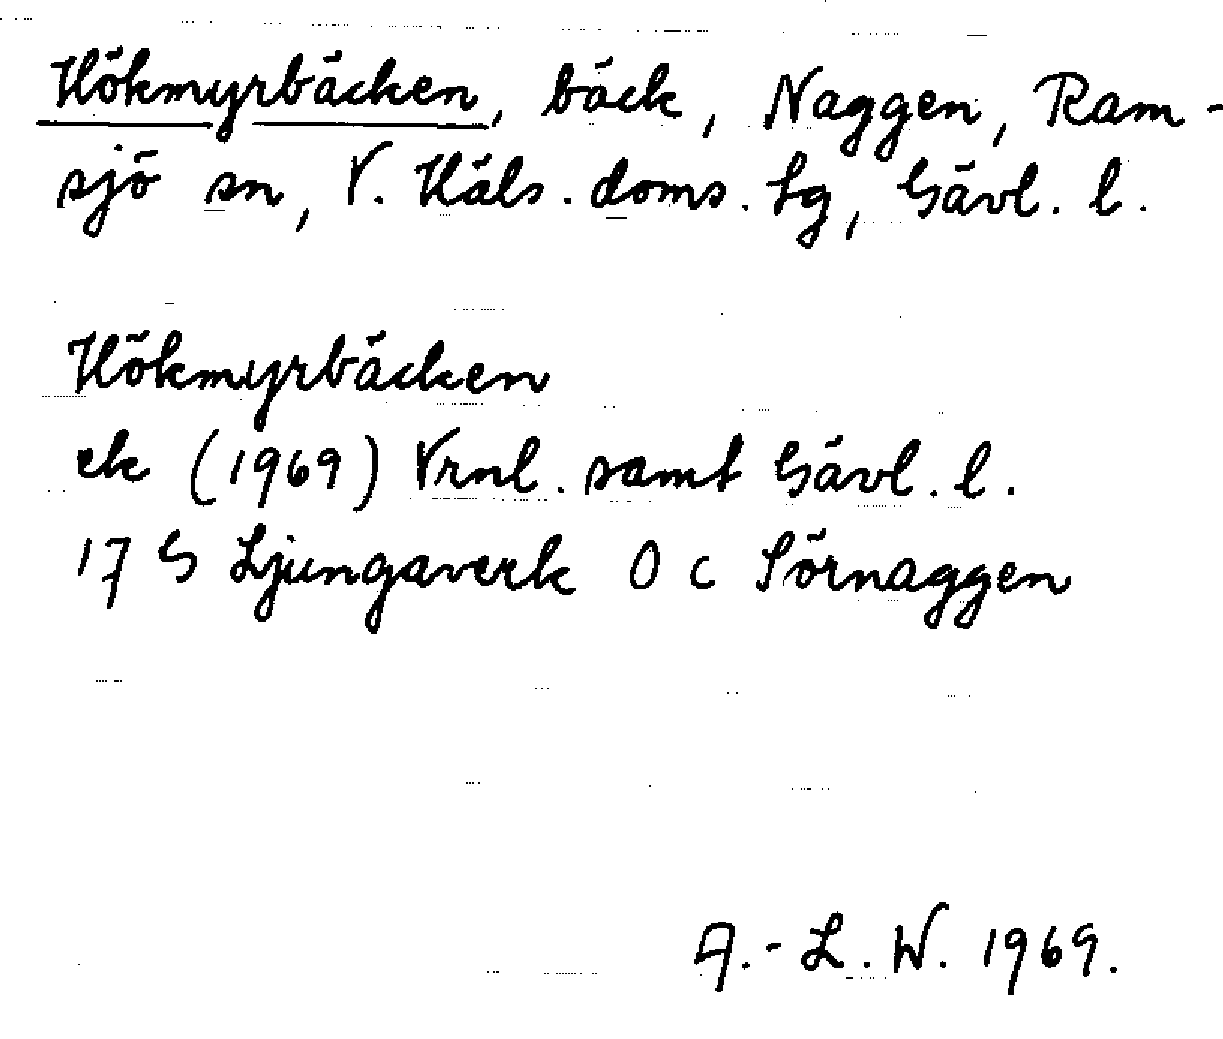 Hökmyrbäcken, bäck, Naggen, Ram-
sjö sn, V. Häls. doms. tg, Gävl. l.
Hökmyrbäcken
ek (1969) Vrnl. samt Gävl. l.
17 G Ljungaverk O c Sörnaggen
A.-L. W. 1969.